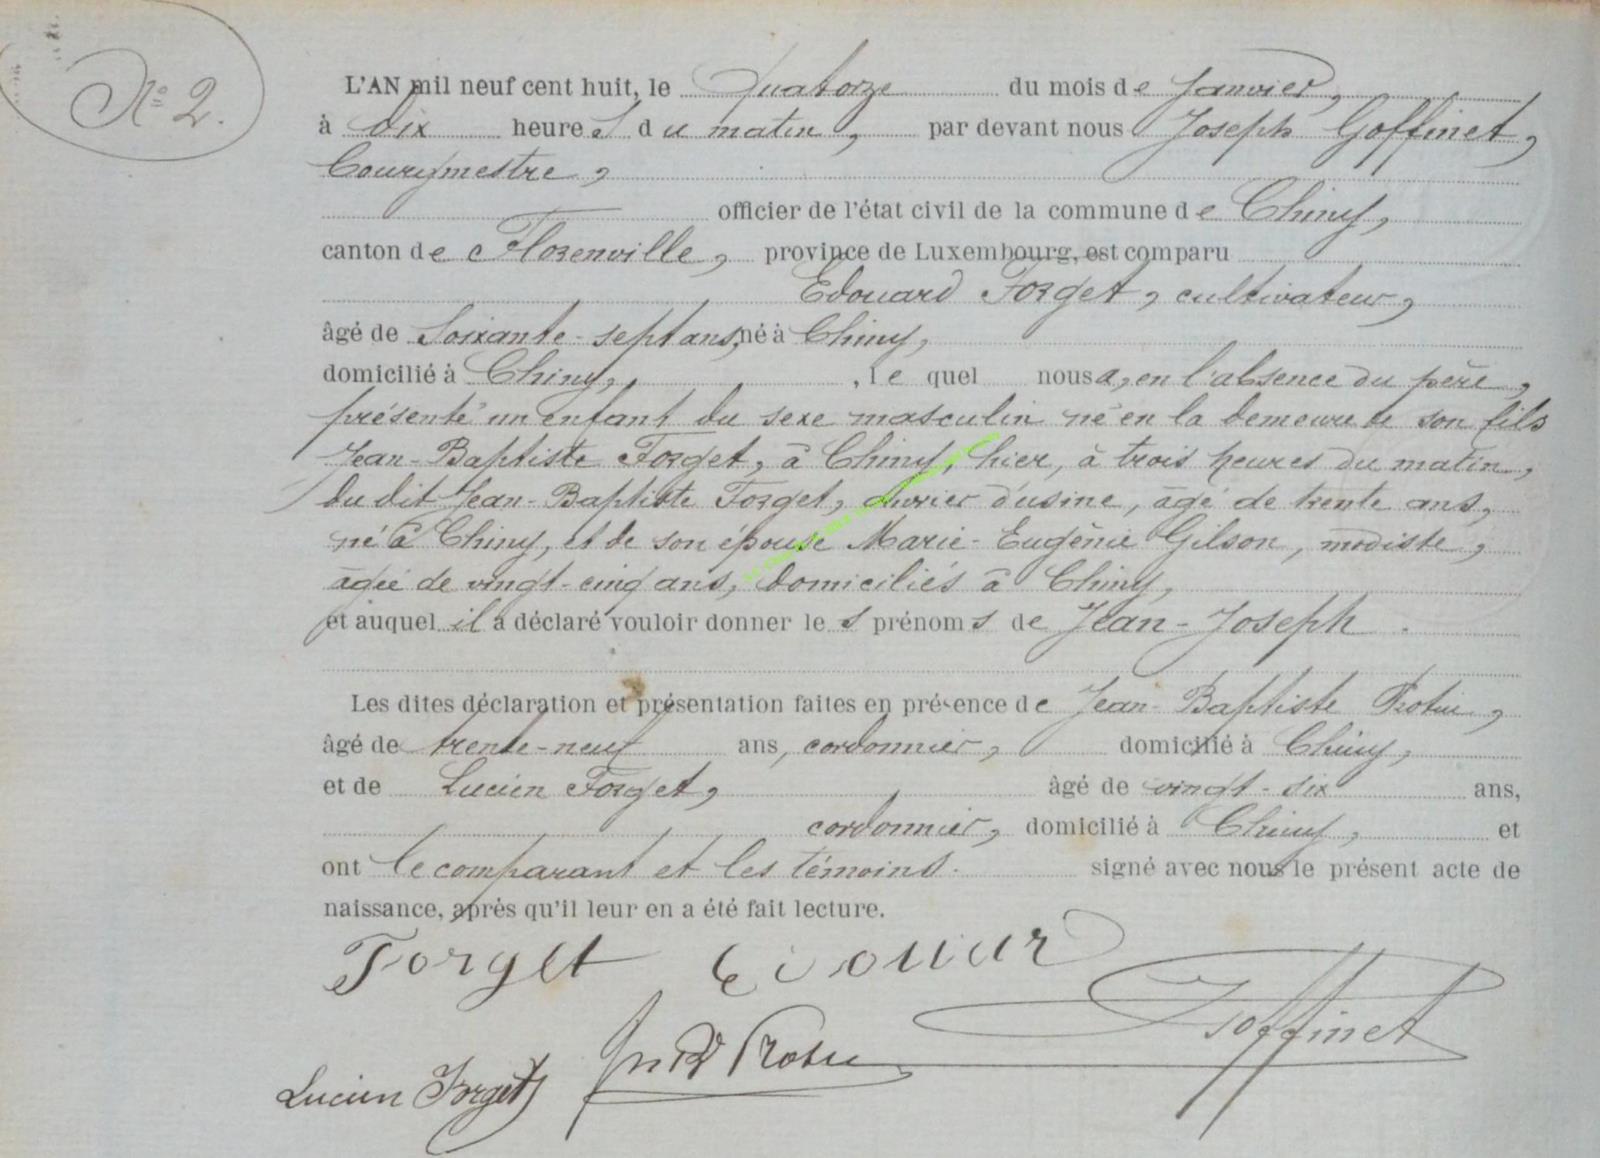 N° 2.
L'AN mil neuf cent huit, le Quatorze du mois de Janvier,
à Dix heures du matin, par devant nous Joseph Goffinet,
Bourgmestre,
officier de l'état civil de la commune de Chiny,
canton de Florenville, province de Luxembourg, est comparu
Edouard Forget, cultivateur,
âgé de Soixante-sept ans, né à Chiny,
domicilié à Chiny, , le quel nous a, en l'absence du père,
présenté un enfant du sexe masculin né en la demeure de son fils
Jean-Baptiste Forget, à Chiny, hier, à trois heures du matin,
du dit Jean-Baptiste Forget, ouvrier d'usine, âgé de trente ans,
né à Chiny, et de son épouse Marie-Eugénie Gilson, modiste,
âgée de vingt-cinq ans, domiciliés à Chiny,
et auquel il a déclaré vouloir donner le s prénom s de Jean-Joseph.
Les dites déclaration et présentation faites en présence de Jean-Baptiste
âgé de trente-neuf ans, cordonnier, domicilié à Chiny,
et de Lucien Forget, âgé de vingt-six ans,
cordonnier, domicilié à Chiny, et
ont le comparant et les témoins. signé avec nous le présent acte de
naissance, après qu'il leur en a été fait lecture.
Forget Edouard
Goffinet
Lucien Forget